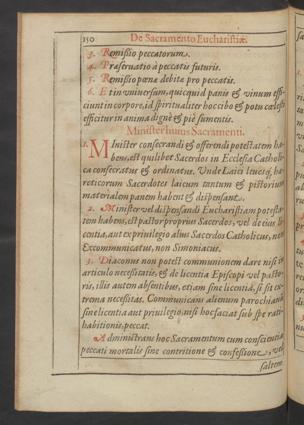 150 De Sacramento Eucharistiæ.
3. Remissio peccatorum.
4. Præservatio à peccatis futuris.
5. Remissio pœnæ debitæ pro peccatis.
6. Et in universum, quicquid panis & vinum effi-
ciunt in corpore, id spiritualiter hoc cibo & potu cœlesti
efficitur in anima dignè & piè sumentis.
Minister huius Sacramenti.
1. Minister consecrandi & offerendi potestatem ha-
bens, est quilibet Sacerdos in Ecclesia Catholi-
ca consecratus & ordinatus. Unde Laici
reticorum Sacerdotes laicum tantum & pictorium
materialem panem habent & dispensant.
2. Minister vel dispensandi Eucharistiam potesta-
tem habens, est pastor proprius Sacerdos, vel de eius li-
centia, aut ex privilegio alius Sacerdos Catholicus, non
Excommunicatus, non Simoniacus.
3. Diaconus non potest communionem dare nisi in
articulo necessitatis, & de licentia Episcopi vel pasto-
ris, illis autem absentibus, etiam sine licentia, si sit ex-
trema necessitas. Communicans alienum parochianũ
sine licentia aut privilegio, nisi hoc faciat sub spe rati-
habitionis, peccat.
Administrans hoc Sacramentum cum conscientia
peccati mortalis sine contritione & confessione, vel
saltem